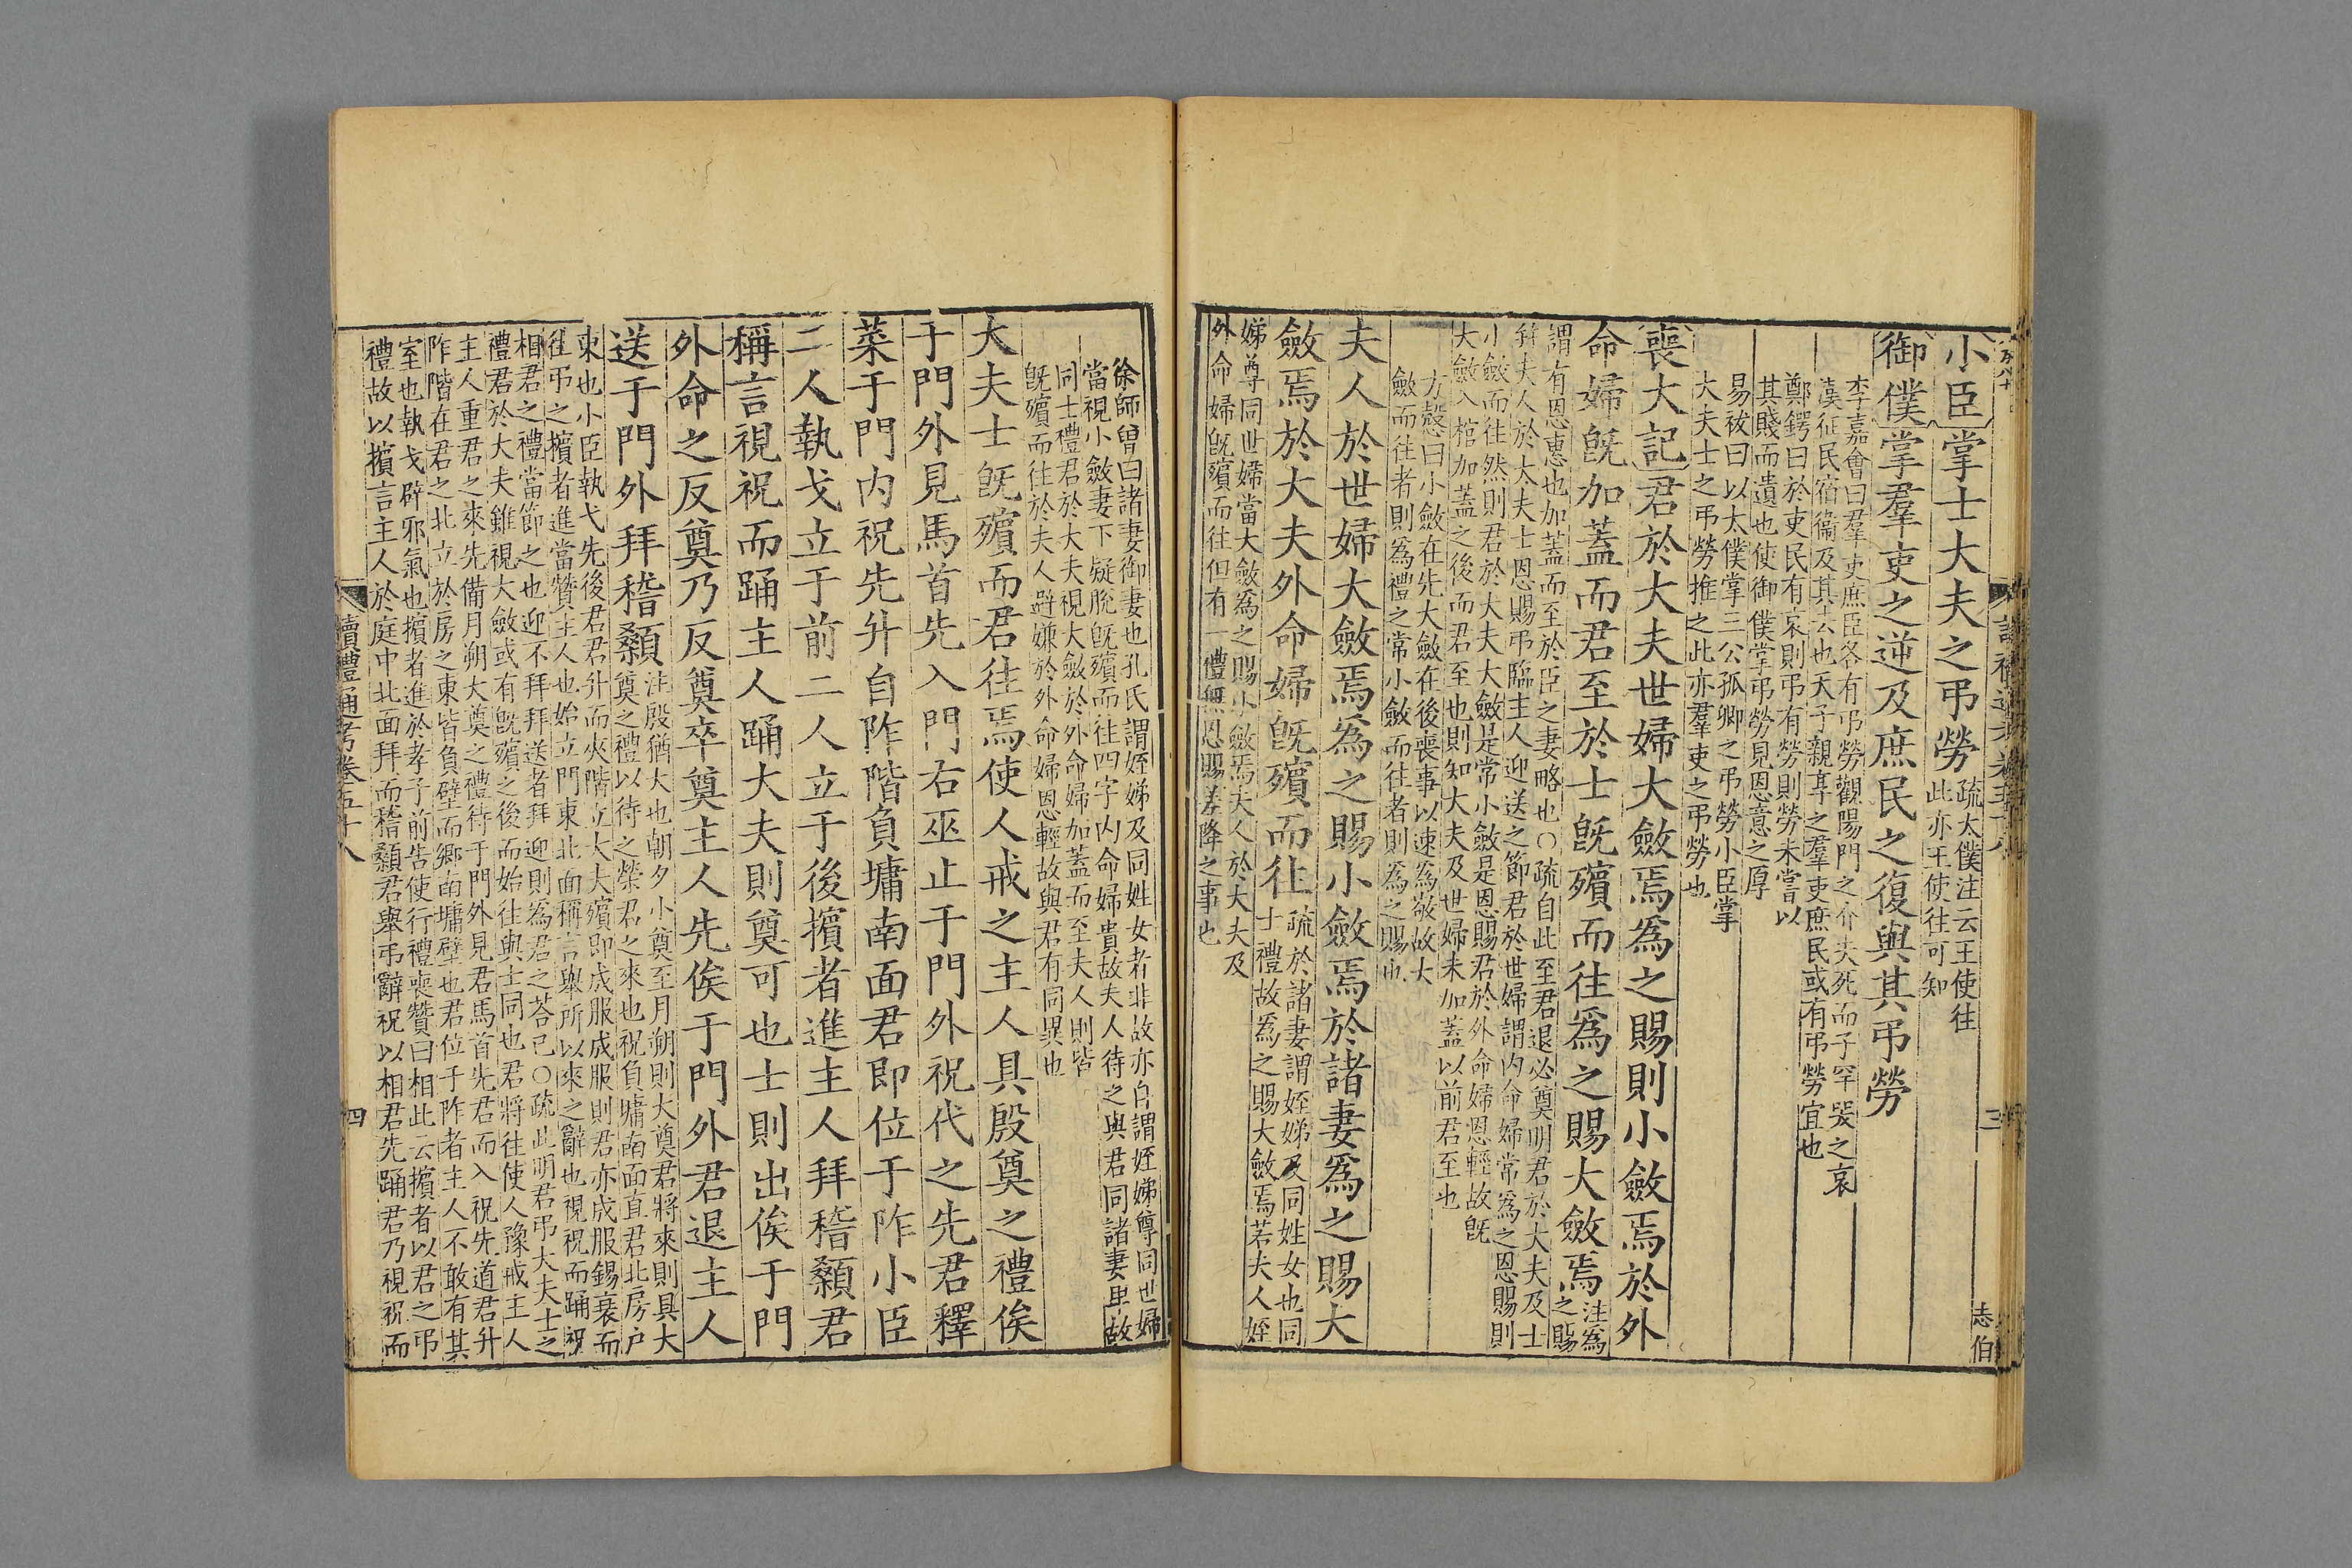 小臣掌士大夫之弔勞
疏太僕注云王使往
此亦王使往可知
御僕掌羣吏之逆及庶民之復與其弔勞
李嘉會曰羣吏庶臣各有弔勞觀陽門之介夫死而子罕哭之哀
漢征民宿衞及其去也天子親享之羣吏庶民或有弔勞宜也
鄭鍔曰於吏民有哀則弔有勞則勞未嘗以
其賤而遺也使御僕掌弔勞見恩意之厚
易祓曰以太僕掌三公孤卿之弔勞小臣掌
大夫士之弔勞推之此亦羣吏之弔勞也
喪大記君於大夫世婦大斂焉爲之賜則小斂焉於外
命婦旣加蓋而君至於士旣殯而往爲之賜大斂焉
注爲
之賜
謂有恩惠也加蓋而至於臣之妻略也○疏自此至君退必奠明君於大夫及士
幷夫人於大夫士恩賜弔臨主人迎送之節君於世婦謂內命婦常爲之恩賜則
小斂而往然則君於大夫大斂是常小斂是恩賜君於外命婦恩輕故旣
大斂入棺加蓋之後而君至也則知大夫及世婦未加蓋以前君至也
方慤曰小斂在先大斂在後喪事以速爲敬故大
斂而往者則爲禮之常小斂而往者則爲之賜也
夫人於世婦大斂焉爲之賜小斂焉於諸妻爲之賜大
斂焉於大夫外命婦旣殯而往
疏於諸妻謂姪娣及同姓女也同
士禮故爲之賜大斂焉若夫人姪
娣尊同世婦當大斂爲之賜小斂焉夫人於大夫及
外命婦旣殯而往但有一禮無恩賜差降之事也
三
志伯
徐師曾曰諸妻御妻也孔氏謂姪娣及同姓女者非故亦自謂姪娣尊同世婦
當視小斂妻下疑脫旣殯而往四字內命婦貴故夫人待之與君同諸妻卑故
同士禮君於大夫視大斂於外命婦加蓋而至夫人則皆
旣殯而往於夫人避嫌於外命婦恩輕故與君有同異也
大夫士旣殯而君往焉使人戒之主人具殷奠之禮俟
于門外見馬首先入門右巫止于門外祝代之先君釋
菜于門內祝先升自阼階負墉南面君即位于阼小臣
二人執戈立于前二人立于後擯者進主人拜稽顙君
稱言視祝而踊主人踊大夫則奠可也士則出俟于門
外命之反奠乃反奠卒奠主人先俟于門外君退主人
送于門外拜稽顙
注殷猶大也朝夕小奠至月朔則大奠君將來則具大
奠之禮以待之榮君之來也祝負墉南面直君北房戶
東也小臣執戈先後君君升而夾階立大夫殯即成服成服則君亦成服錫衰而
往弔之擯者進當贊主人也始立門東北面稱言舉所以來之辭也視祝而踊祝
相君之禮當節之也迎不拜拜送者拜迎則爲君之荅己○疏此明君弔大夫士之
禮君於大夫雖視大斂或有旣殯之後而始往與士同也君將往使人豫戒主人
主人重君之來先備月朔大奠之禮待于門外見君馬首先君而入祝先道君升
阼階在君之北立於房之東皆負壁而鄉南墉壁也君位于阼者主人不敢有其
室也執戈辟邪氣也擯者進於孝子前告使行禮喪贊曰相此云擯者以君之弔
禮故以擯言主人於庭中北面拜而稽顙君舉弔辭祝以相君先踊君乃視祝而
讀禮通考卷五十八
四